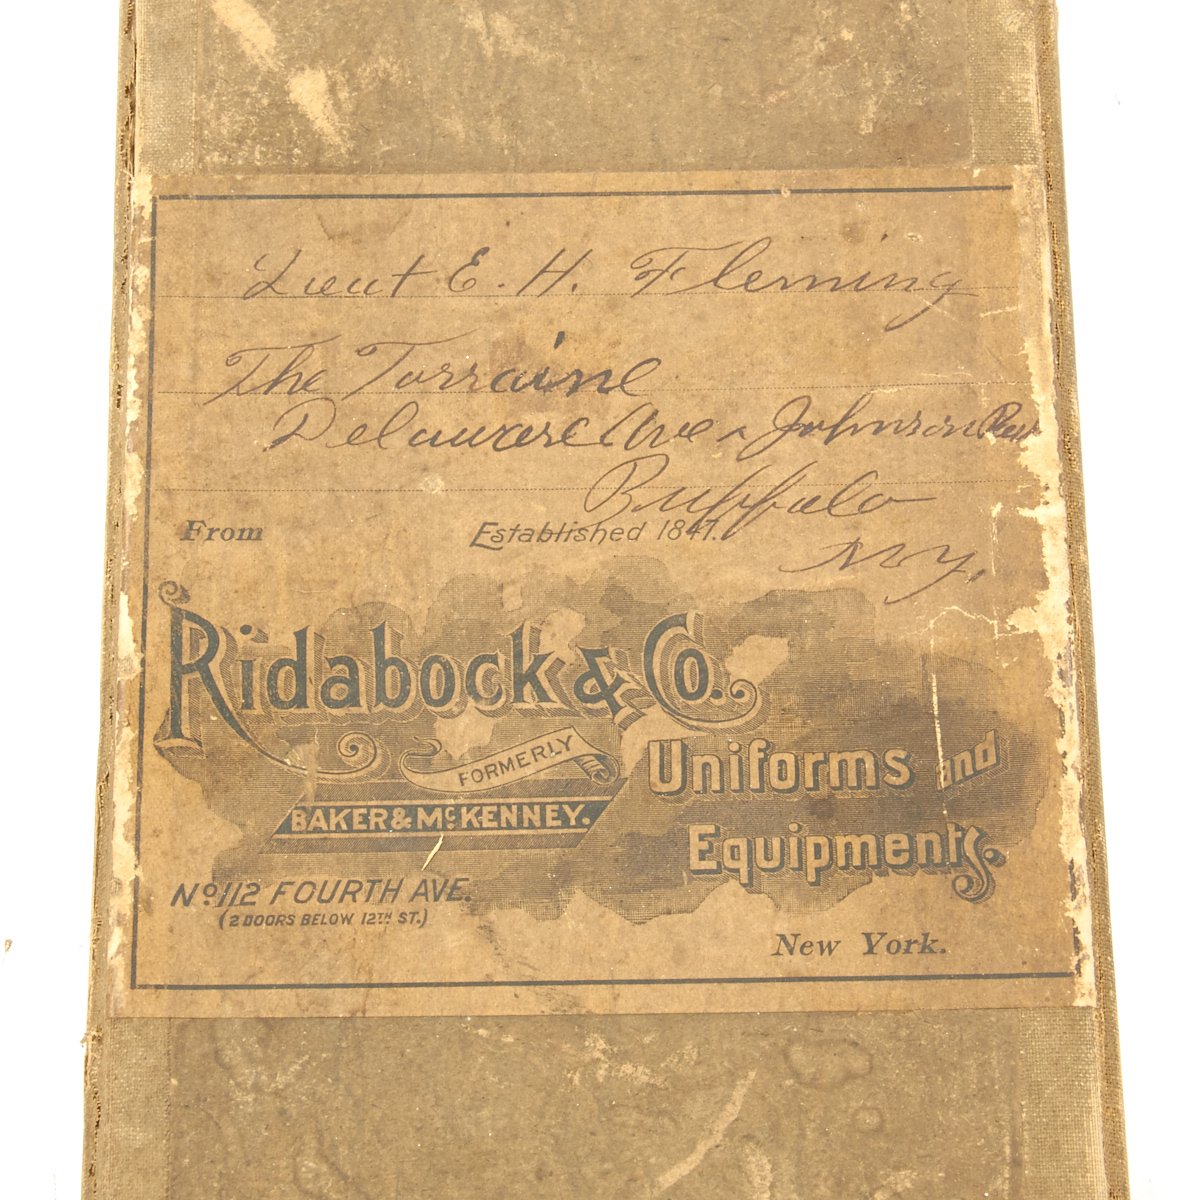 Lieut E. H. Fleming
The Torraine
Delaware Ave & Johnson
Buffalo
N.Y.
From
Established 1847.
Ridabock & Co.
FORMERLY
BAKER & McKENNEY.
Uniforms and
Equipments.
No 112 FOURTH AVE.
(2 DOORS BELOW 12TH ST.)
New York.